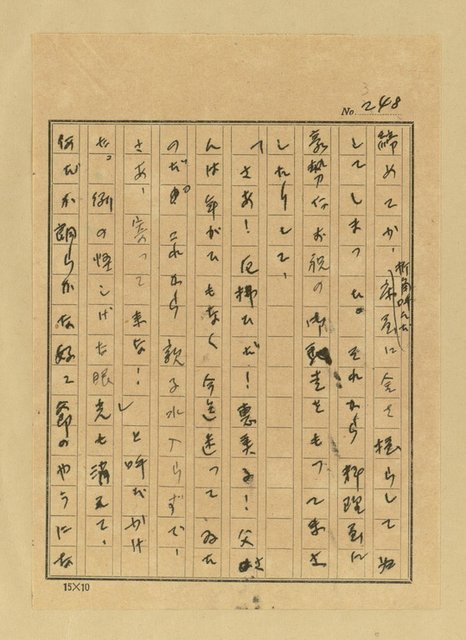 No. 248
諦めてか、折角呼んだ床屋に金を握らして帰
してしまつた。それから料理屋に
豪勢なお祝の御馳走をもつて来さ
したりして、
「さあ！厄拂ひだ！恵美子！父さ
んは年がひもなく今迄迷つてゐた
のだ。これから親子水入らずで、
さあ、寄つて来な！」と呼びかけ
た。例の怪しげな眼光も消えて、
何だか朗らかな好々爺のやうにな
15×10